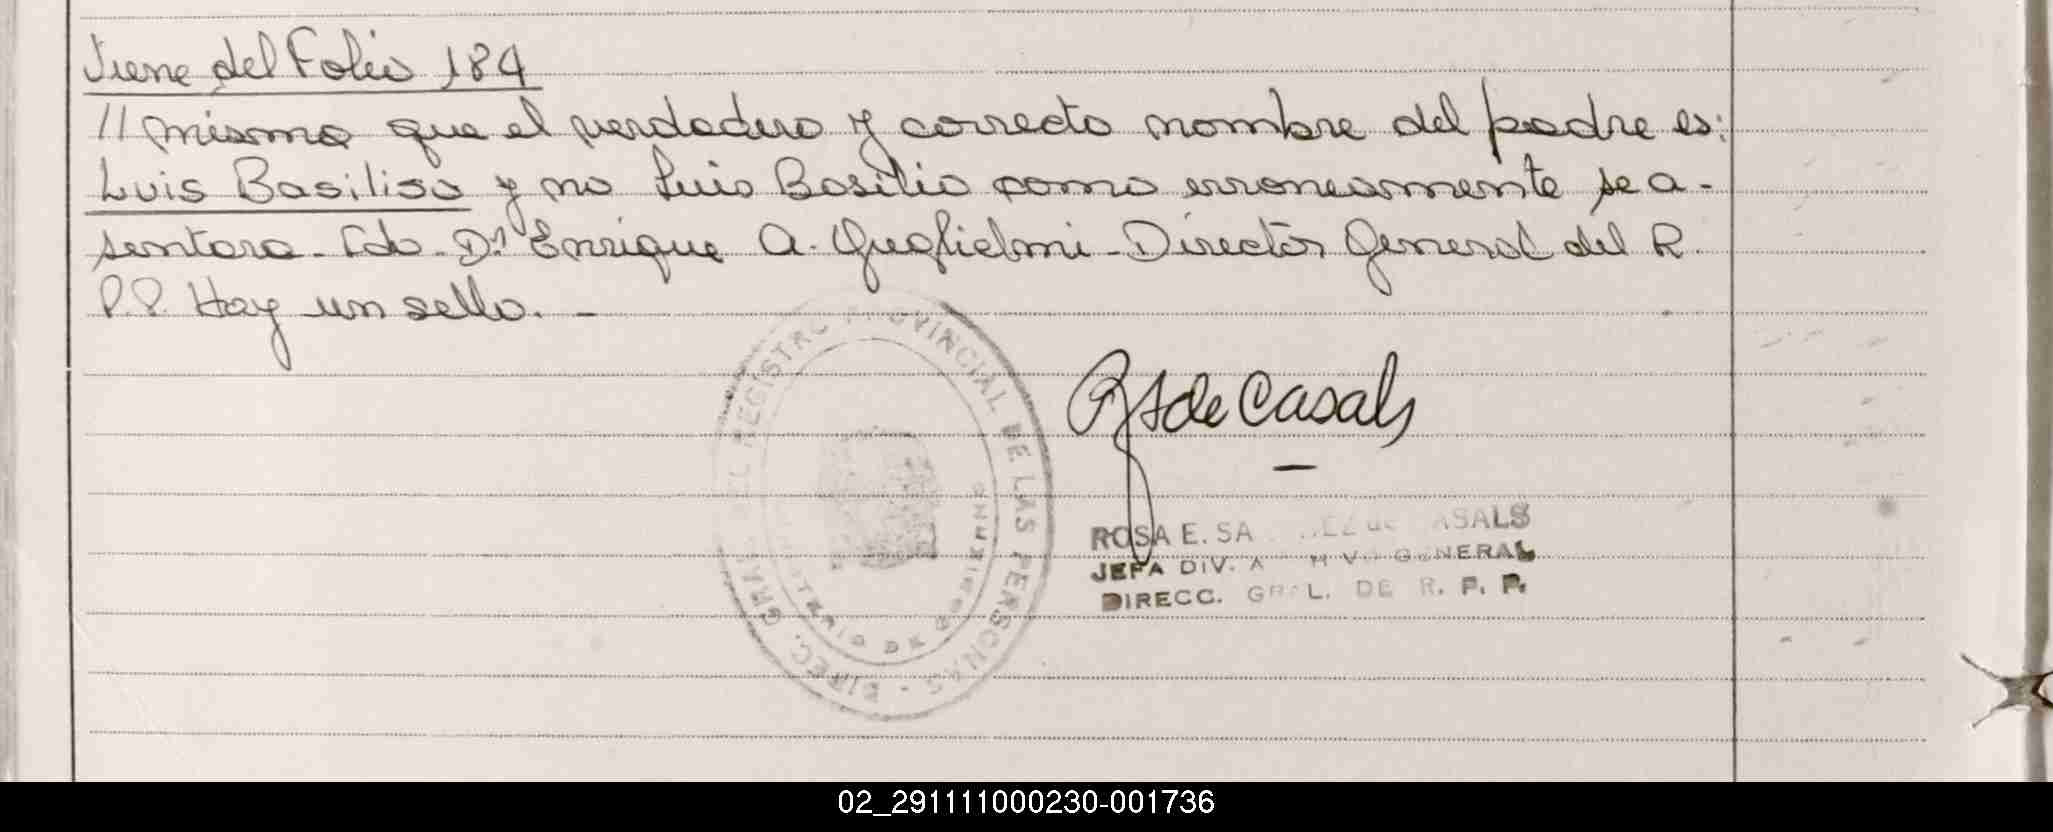 Viene del Folio 184
// mismo que el verdadero y correcto nombre del padre es:
Luis Basiliso y no Luis Basilio como erroneamente se a-
sentara. Fdo. Dr. Enrique A. Guglielmi - Director General del R.
P.P. Hay un sello. -
DIREC. GRAL. DEL REGISTRO PROVINCIAL DE LAS PERSONAS -
MINISTERIO DE GOBIERNO
de Casals
ROSA E. SA EZ de CASALS
JEFA DIV. A GENERAL
DIRECC. GRAL. DE R. P. P.
02_291111000230-001736